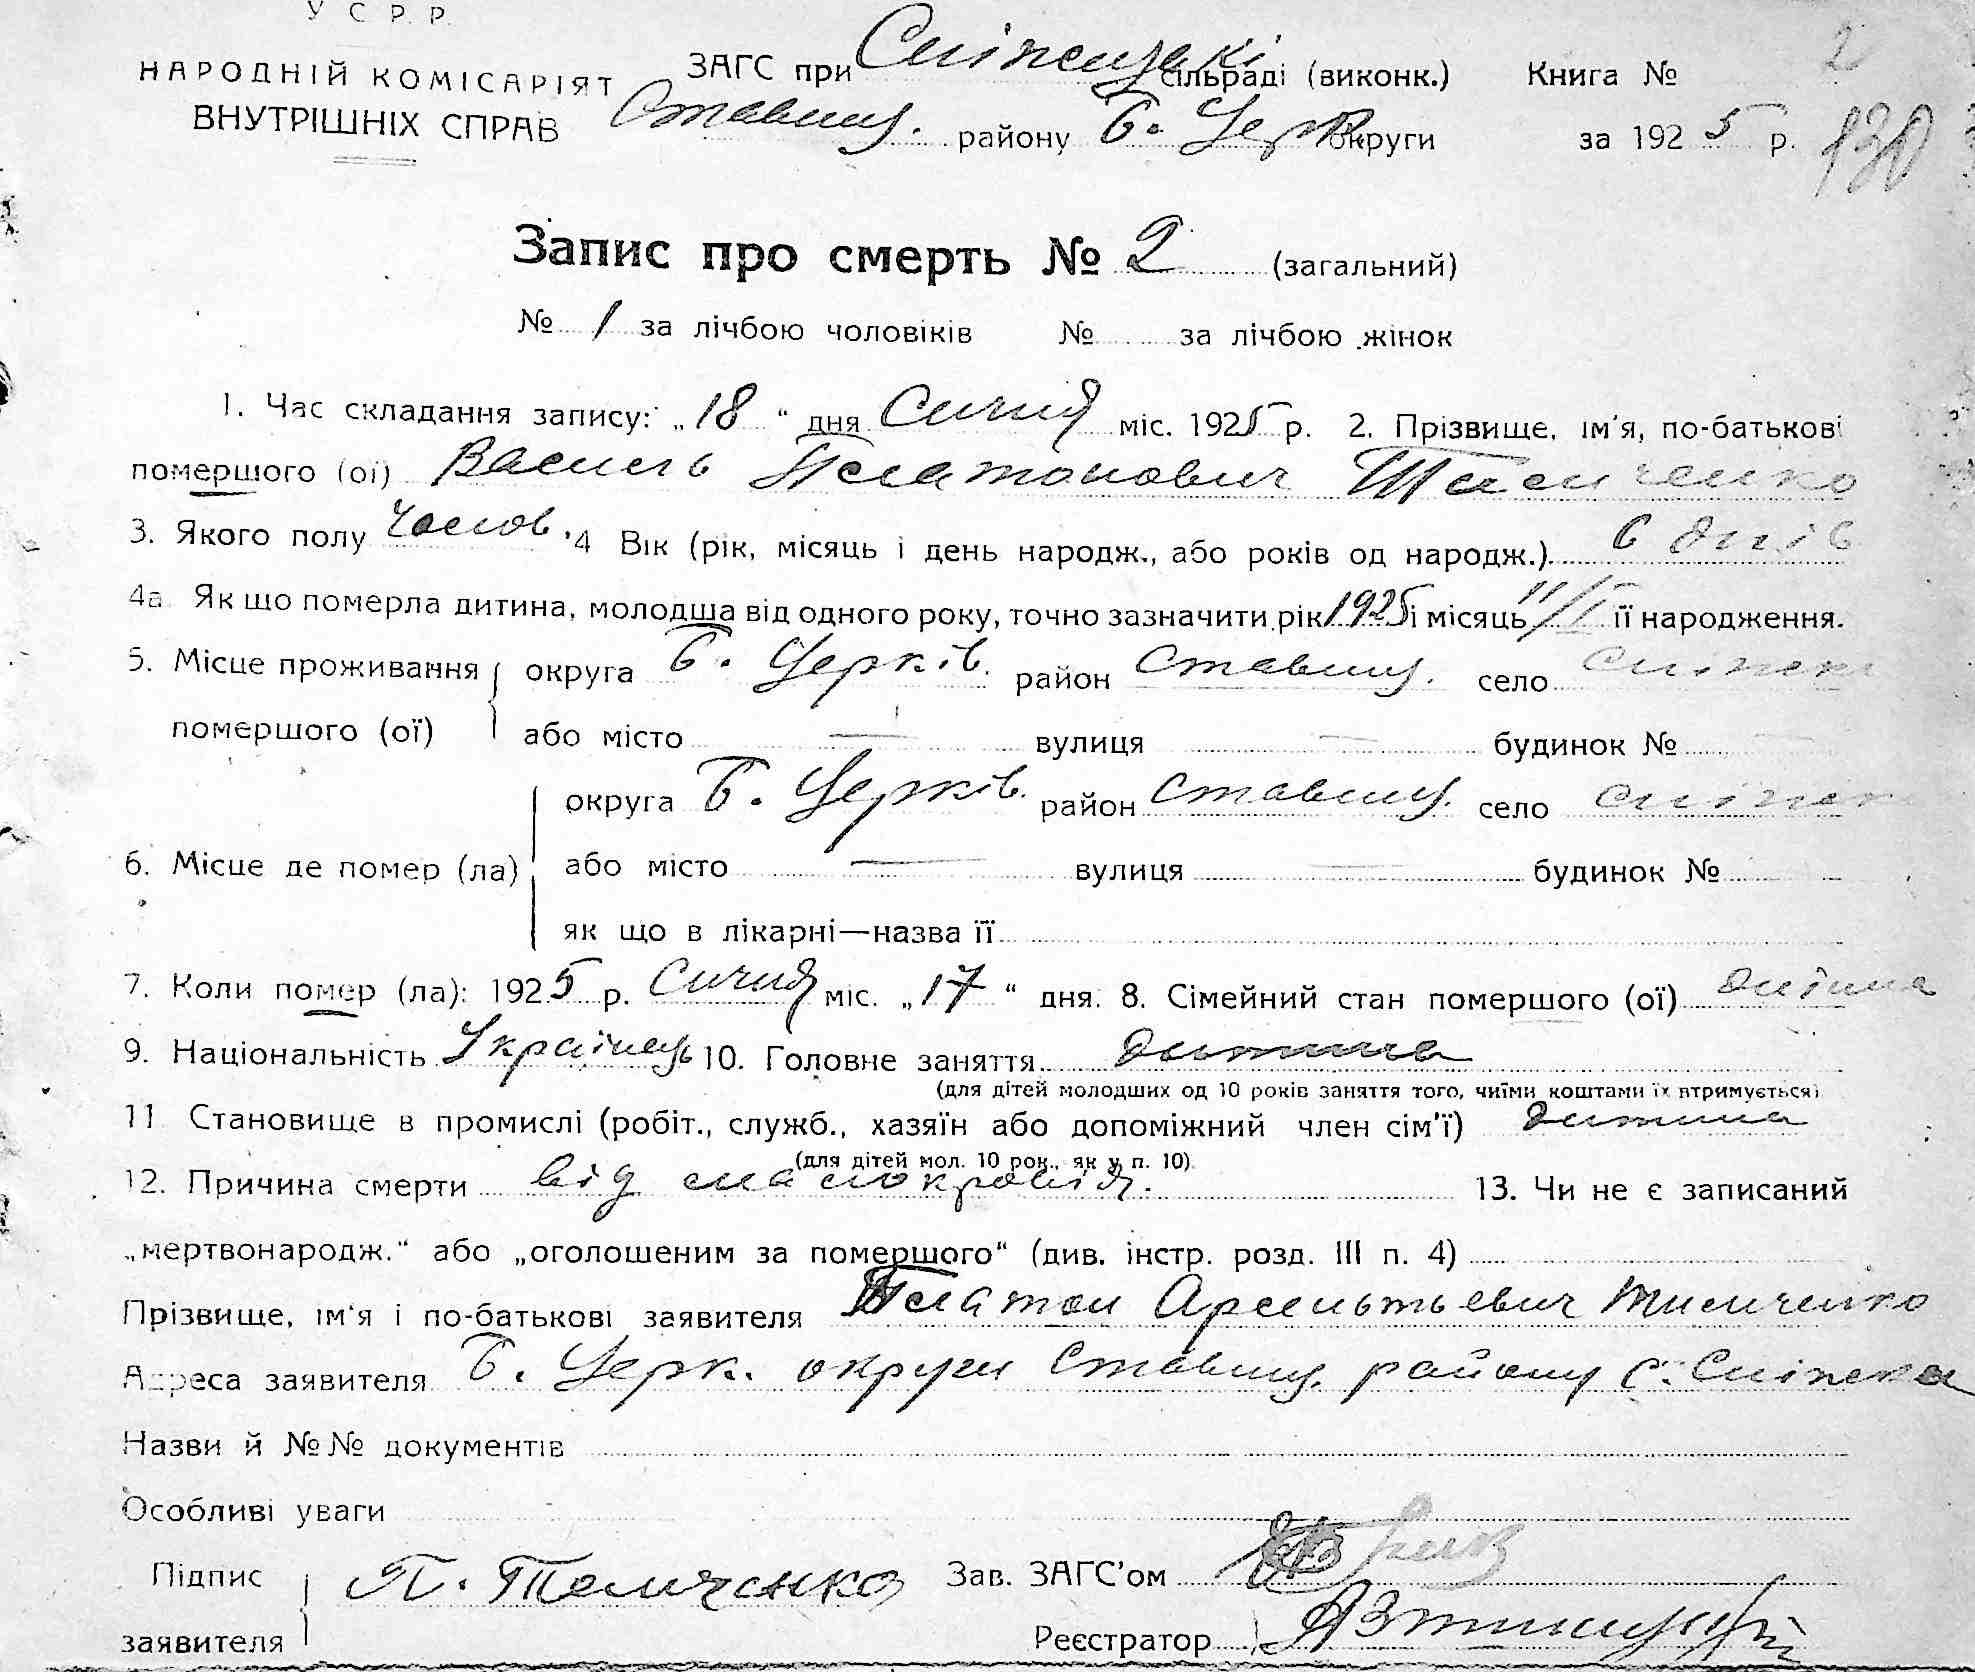 У С Р. Р.
НАРОДНІЙ КОМІСАРІЯТ
ВНУТРІШНІХ СПРАВ
ЗАГС при сільраді (виконк.) Книга № 2
Ставищ. району Б. Церк округи за 1925 р. 130
Запис про смерть № 2 (загальний)
№ 1 за лічбою чоловіків № за лічбою жінок
1. Час складання запису: „18“ дня Січня міс. 1925 р. 2. Прізвище, ім'я, по-батькові
помершого (ої) Василь Платонович
3. Якого полу Чолов. 4 Вік (рік, місяць і день народж., або років од народж.). 6 днів
4а Як що померла дитина, молодша від одного року, точно зазначити рік 1925 і місяць 11/I її народження.
5. Місце проживання округа Б. Церків. район Ставищ. село
помершого (ої) або місто — вулиця — будинок №
округа Б. Церків. район Ставищ. село
6. Місце де помер (ла) або місто — вулиця — будинок №
як що в лікарні—назва її
7. Коли помер (ла): 1925 р. Січня міс. „17“ дня. 8. Сімейний стан помершого (ої) дитина
9. Національність Українець 10. Головне заняття дитина
(для дітей молодших од 10 років заняття того, чиїми коштами їх втримується)
11 Становище в промислі (робіт., служб., хазяїн або допоміжний член сім'ї) дитина
(для дітей мол. 10 рок., як у п. 10).
12. Причина смерти від малокровія. 13. Чи не є записаний
„мертвонародж.“ або „оголошеним за помершого“ (див. інстр. розд. III п. 4)
Прізвище, ім'я і по-батькові заявителя Платон Арсентьевич
Адреса заявителя Б. Церк. округи Ставищ. району с.
Назви й №№ документів
Особливі уваги
Підпис заявителя П. Зав. ЗАГС'ом
Реєстратор